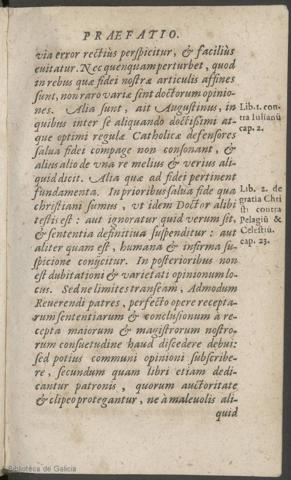 PRÆFATIO.
via error rectiùs perspicitur, & faciliùs
euitatur. Nec quenquam perturbet, quod
in rebus quæ fidei nostræ articulis affines
sunt, non raro variæ sint doctorum opinio-
nes. Alia sunt, ait Augustinus, in
quibus inter se aliquando doctissimi at-
que optimi regulæ Catholicæ defensores
salua fidei compage non consonant, &
alius alio de vna re melius & verius ali-
quid dicit. Alia quæ ad fidei pertinent
fundamenta. In prioribus salua fide qua
christiani sumus, vt idem Doctor alibi
testis est: aut ignoratur quid verum sit,
& sententia definitiua suspenditur: aut
aliter quam est, humana & infirma su-
spicione conijcitur. In posterioribus non
est dubitationi & varietati opinionum lo-
cus. Sed ne limites transeam, Admodum
Reuerendi patres, perfecto opere recepta-
rum sententiarum & conclusionum à re-
cepta maiorum & magistrorum nostro-
rum consuetudine haud discedere debui:
sed potius communi opinioni subscribe-
re, secundum quam libri etiam dedi-
cantur patronis, quorum auctoritate
& clipeo protegantur, ne à maleuolis ali-
quid
Lib. 1. con-
tra Iulianũ
cap. 2.
Lib. 2. de
gratia Chri
sti contra
Pelagiũ &
Celestiũ.
cap. 23.
Biblioteca de Galicia